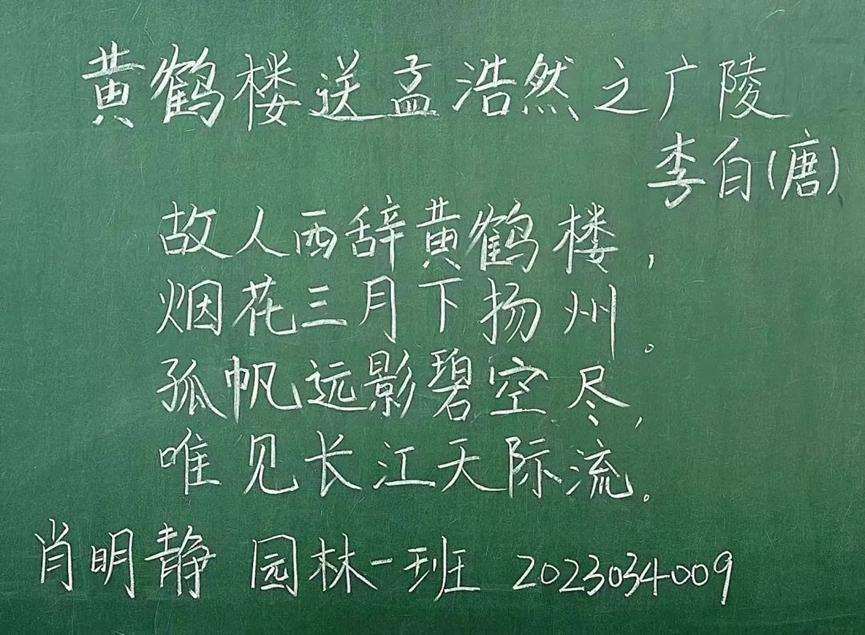 黄鹤楼送孟浩然之广陵
李白(唐)
故人西辞黄鹤楼,
烟花三月下扬州。
孤帆远影碧空尽,
唯见长江天际流。
肖明静 园林一班 2023034009